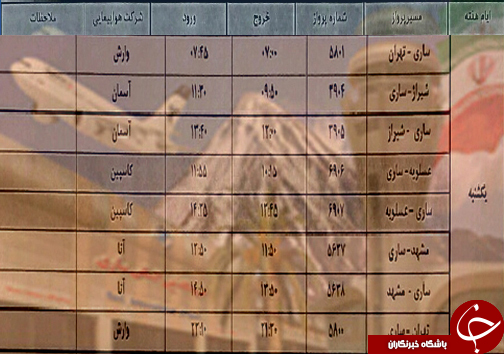 ایام هفته مسیر پرواز شماره پرواز خروج ورود شرکت هواپیمایی ملاحظات
ساری - تهران ۵۸۰۱ ۰۷:۰۰ ۰۷:۴۵ وارش
شیراز - ساری ۳۹۰۴ ۰۹:۵۰ ۱۱:۳۰ آسمان
ساری - شیراز ۳۹۰۵ ۱۲:۰۰ ۱۳:۴۰ آسمان
عسلویه - ساری ۶۹۰۶ ۱۰:۱۵ ۱۱:۵۵ کاسپین
یکشنبه
ساری - عسلویه ۶۹۰۷ ۱۲:۴۵ ۱۴:۲۵ کاسپین
مشهد - ساری ۵۶۳۷ ۱۱:۵۰ ۱۲:۵۰ آتا
ساری - مشهد ۵۶۳۸ ۱۳:۵۰ ۱۴:۵۰ آتا
تهران - ساری ۵۸۰۰ ۲۱:۲۰ ۲۲:۱۰ وارش
باشگاه خبرنگاران